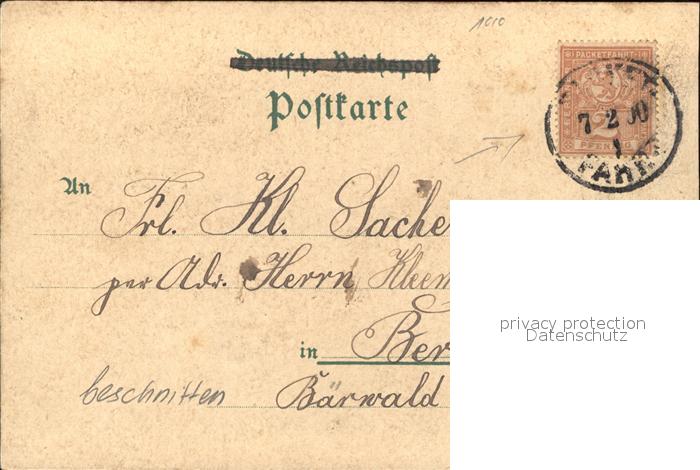 1010
Deutsche Reichspost
Postkarte
PACKETFAHRT
2
PFENNIG
7 2 00
1
FAHRT
An
Frl. Kl. Sache
per Adr. Herrn Kleem
in Ber
Bärwald
beschnitten
privacy protection
Datenschutz